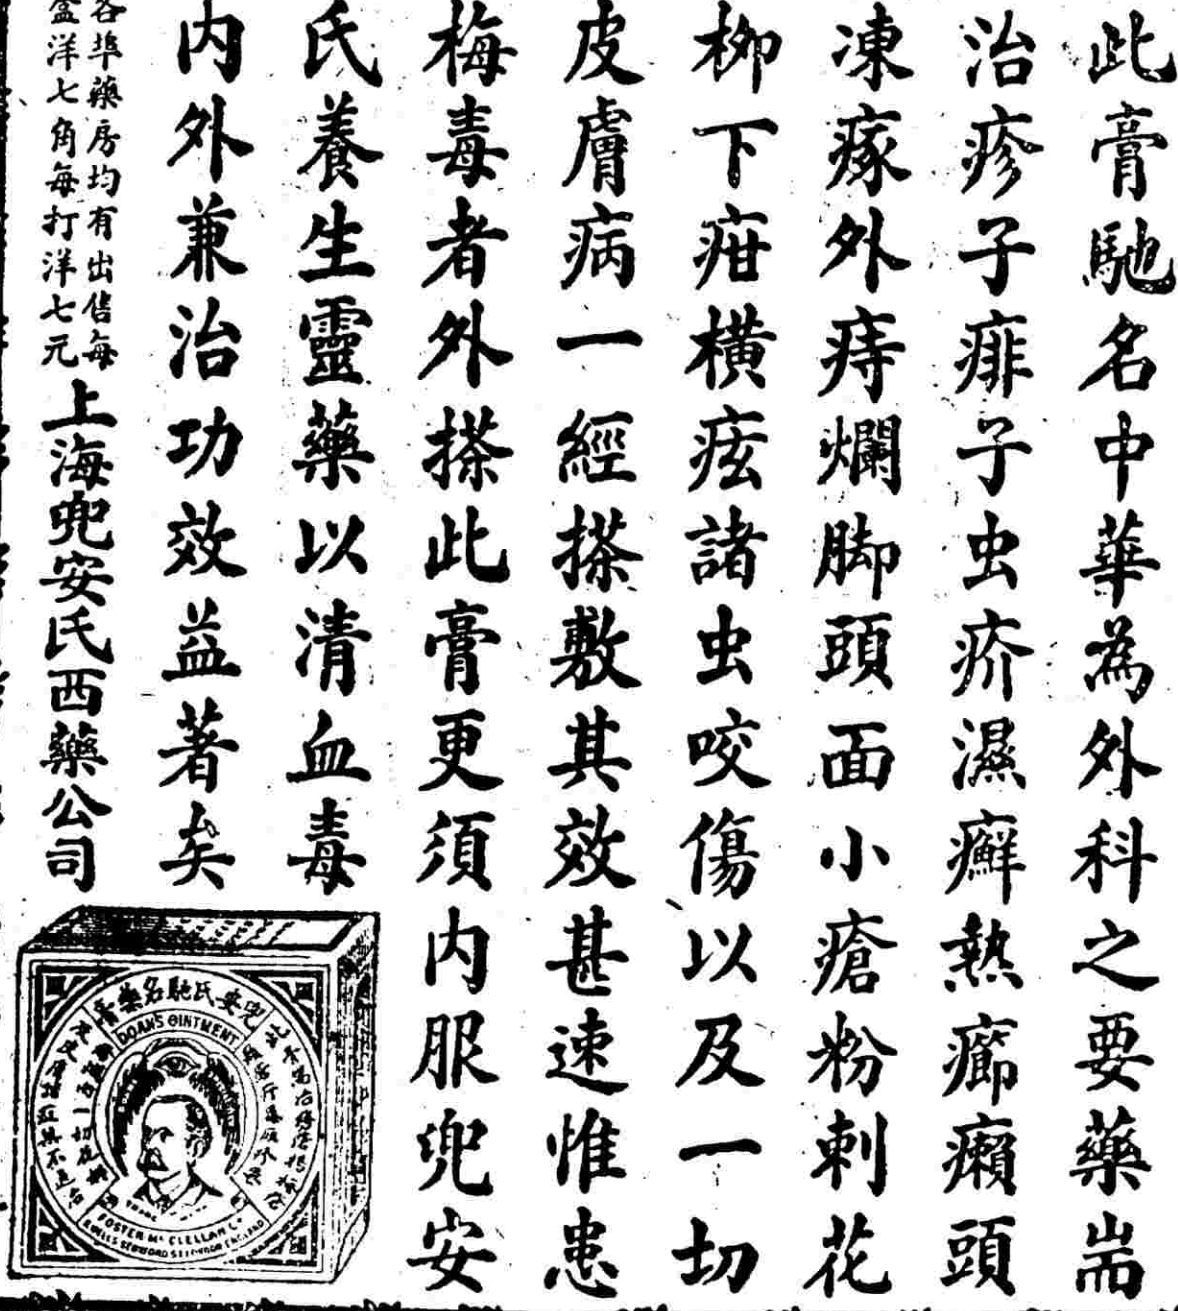 此膏馳名中華為外科之要藥耑
治疹子痱子虫疥濕癬熱癤癩頭
凍瘃外痔爛脚頭面小瘡粉刺花
柳下疳橫痃諸虫咬傷以及一切
皮膚病一經搽敷其效甚速惟患
梅毒者外搽此膏更須内服兜安
氏養生靈藥以清血毒
内外兼治功效益著矣
各埠藥房均有出售每
盒洋七角每打洋七元
上海兜安氏西藥公司
兜安氏馳名藥膏
DOAN'S OINTMENT
FOSTER Mc CLELLAN Co